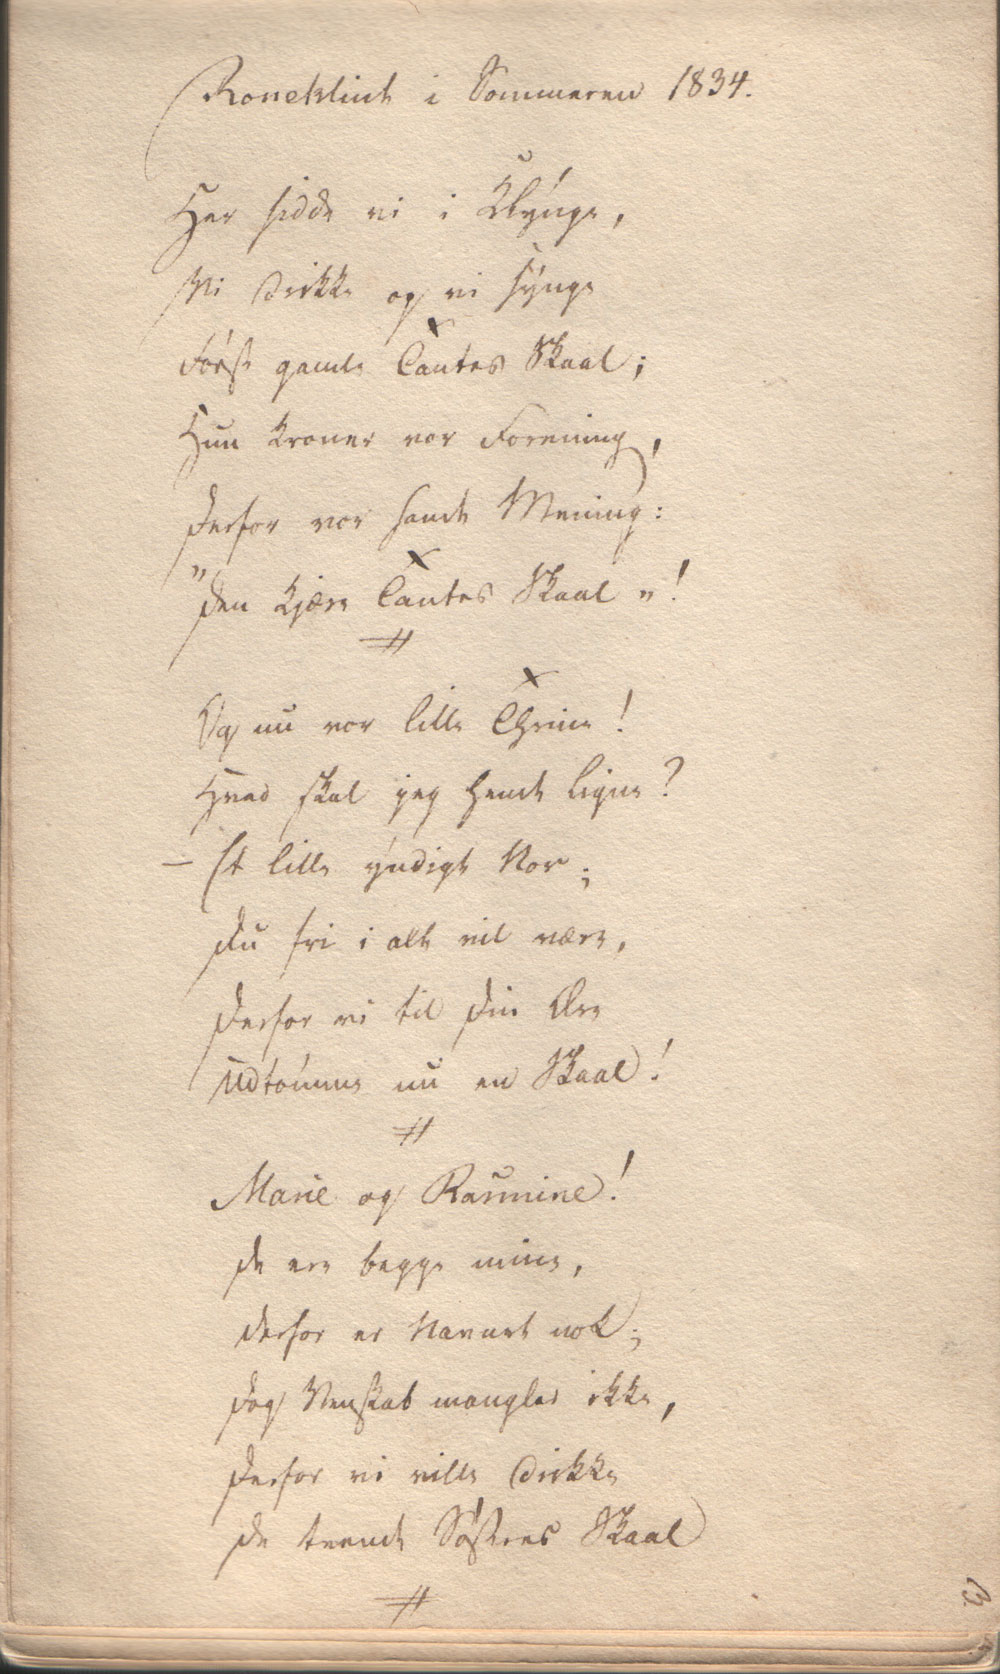 Roneklint i Sommeren 1834.
Her sidde vi i Klynge,
Vi drikke og vi synge
Først gamle Tantes Skaal;
Hun kroner vor Forening,
Derfor vor sande Mening:
"Den kjære Tantes Skaal"!
Og nu vor lille Thrine!
Hvad skal jeg hende ligne?
– Et lille yndigt Nor;
Du fri i alt vil være,
Derfor vi til Din Ære
Udtømme nu en Skaal!
Marie og Rasmine!
De ere begge mine,
Derfor er Navnet nok;
Dog Venskab mangler ikke,
Derfor vi ville drikke
De tvende Søstres Skaal
3.